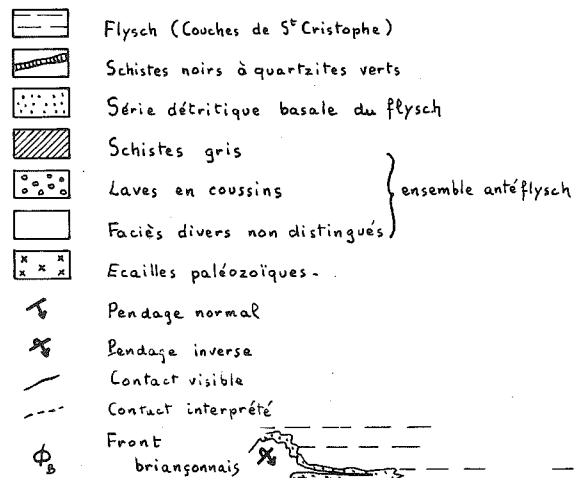 Flysch (Couches de Sᵗ Cristophe)
Schistes noirs à quartzites verts
Série détritique basale du flysch
Schistes gris
Laves en coussins
ensemble antéflysch
Faciès divers non distingués
Ecailles paléozoïques.
Pendage normal
Pendage inverse
Contact visible
Contact interprété
ϕB Front
briançonnais